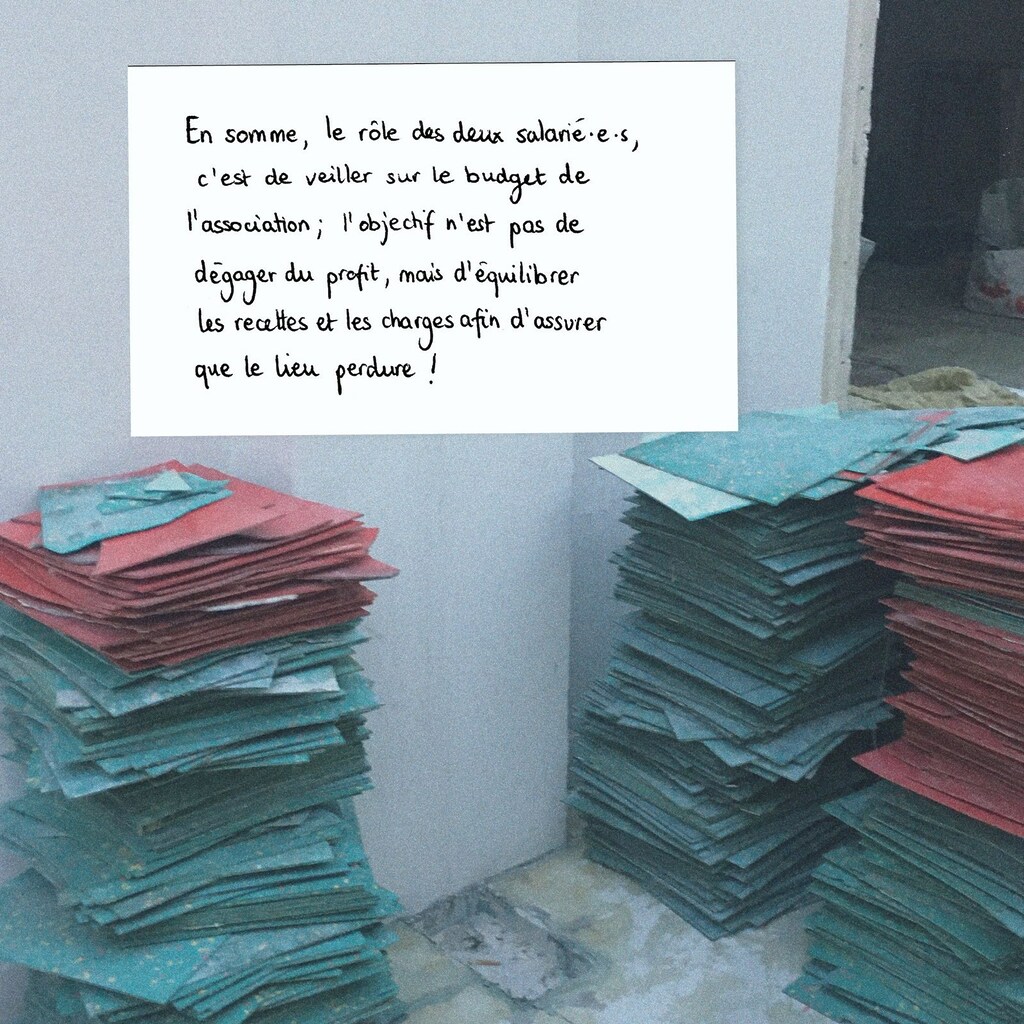 En somme, le rôle des deux salarié·e·s,
c'est de veiller sur le budget de
l'association ; l'objectif n'est pas de
dégager du profit, mais d'équilibrer
les recettes et les charges afin d'assurer
que le lieu perdure !